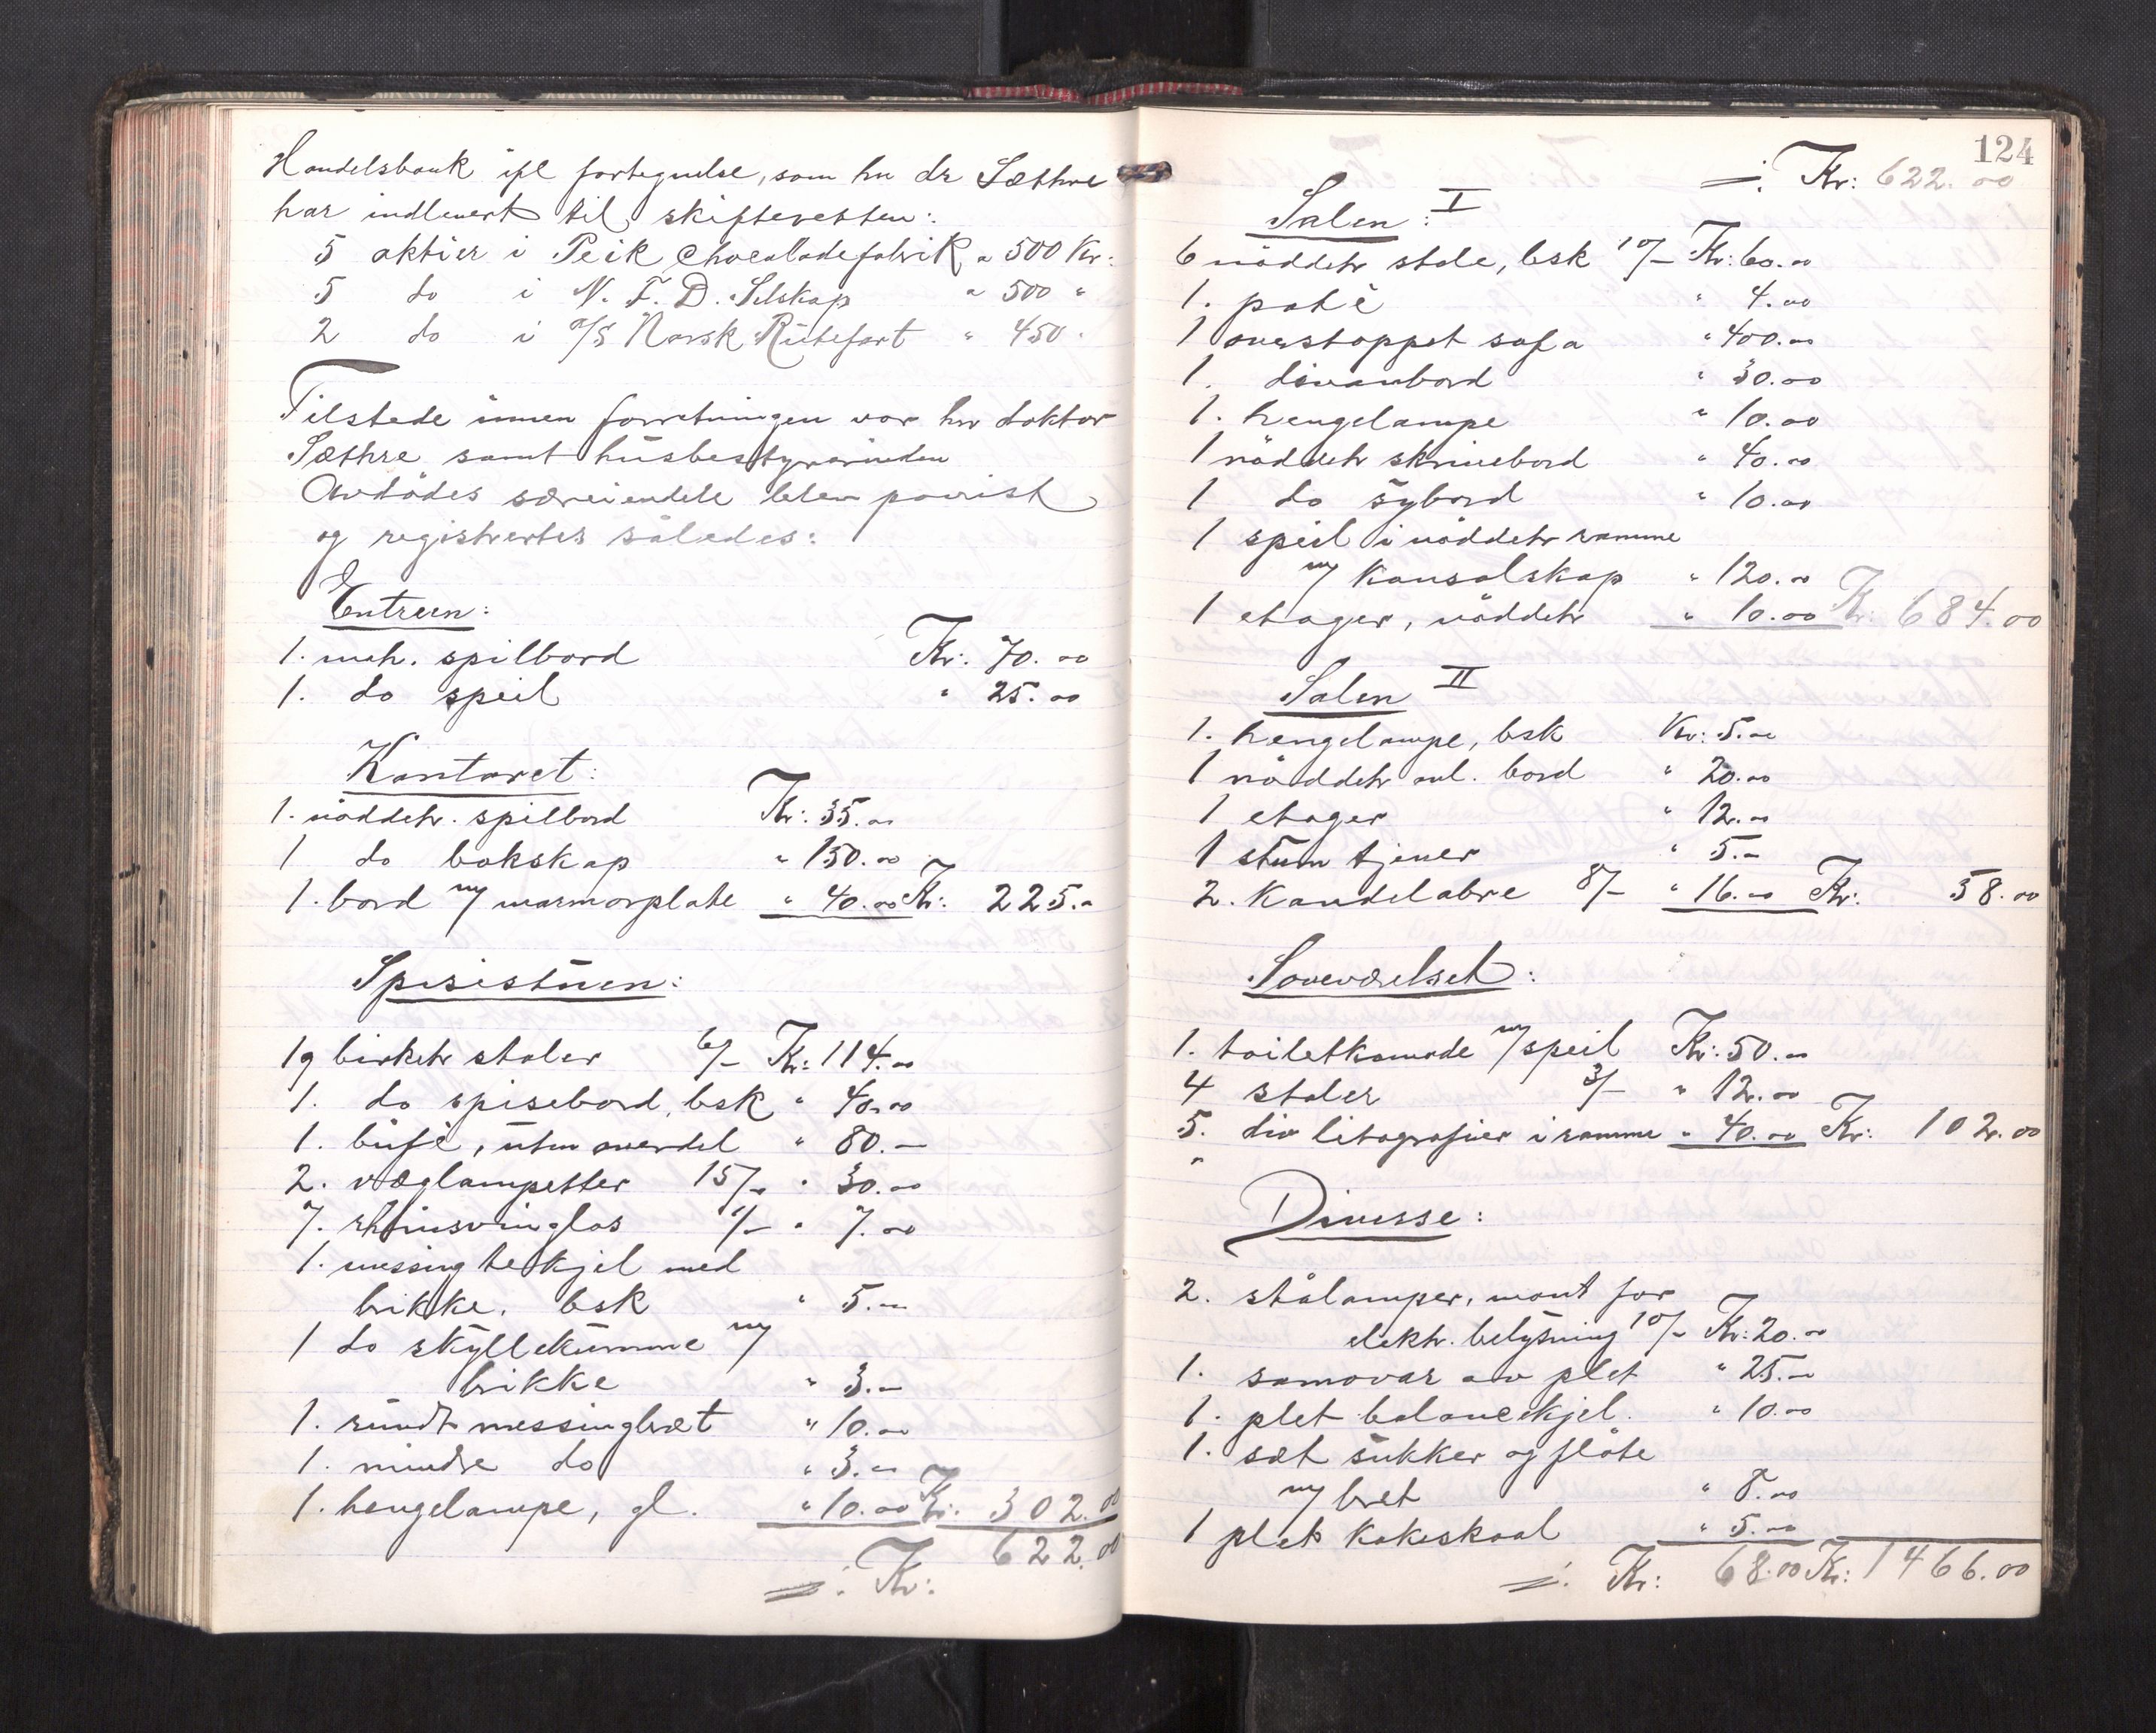 Handelsbank ifl fortegnelse, som hr dr Sæthre
har indlevert til skifteretten:
5 aktier i Peik Chocoladefabrik a 500 Kr:
5 do i N. F. D. Selskap " 500 "
2 do i A/S Norsk Rutefart " 450 "
Tilstede innen forretningen var hr doktor
Sæthre samt husbestyrerinden
Avdödes særeiendele blev paavist
og registrertes således:
Entreen:
1. mah. spilbord Kr: 70.00
1. do speil " 25.00
Kontoret:
1. nöddetr. spilbord Kr: 35.00
1 do bokskap " 150.00
1. bord m/ marmorplate " 40.00 Kr: 225.00
Spisestuen:
19 birketr stoler 6/- Kr: 114.00
1. do spisebord, bsk " 40.00
1. bufè, uten overdel " 80.—
2. væglampetter 15/- " 30.00
7. rhinsvinglas 1/- " 7.00
1. messing tekjel med
brikke, bsk " 5.—
1 do skyllekumme m/
brikke " 3.—
1. rundt messingbræt " 10.00
1. mindre do " 3.—
1. hengelampe, gl. " 10.00 Kr: 302.00
÷. Kr: 622.00
124
÷. Kr: 622.00
Salen: I
6 nöddetr stole, bsk 10/- Kr: 60.00
1. potè " 4.00
1 overstoppet sofa " 400.00
1. divanbord " 30.00
1. hengelampe " 10.00
1 nöddetr skrivebord " 40.00
1 do sybord " 10.00
1 speil i nöddetr ramme
m/ konsolskap " 120.00
1 etager, nöddetr " 10.00 Kr: 684.00
Salen II
1. hengelampe, bsk Kr: 5.00
1 nöddetr ovl. bord " 20.00
1 etager " 12.00
1 stum tjener " 5.—
2. Kandelabre 8/- " 16.00 Kr: 58.00
Soveværelset:
1. toiletkomode m/ speil Kr: 50.00
4 stoler 3/- " 12.00
5. div litografier i ramme " 40.00 Kr: 102.00
Diverse:
2. stålamper, mont for
elektr. belysning 10/- Kr: 20.00
1. samovar av plet " 25.—
1. plet balancekjel. " 10.00
1. sæt sukker og flöte
m/ bret " 8.00
1 plet Kakeskaal " 5.00
÷. Kr: 68.00 Kr: 1466.00